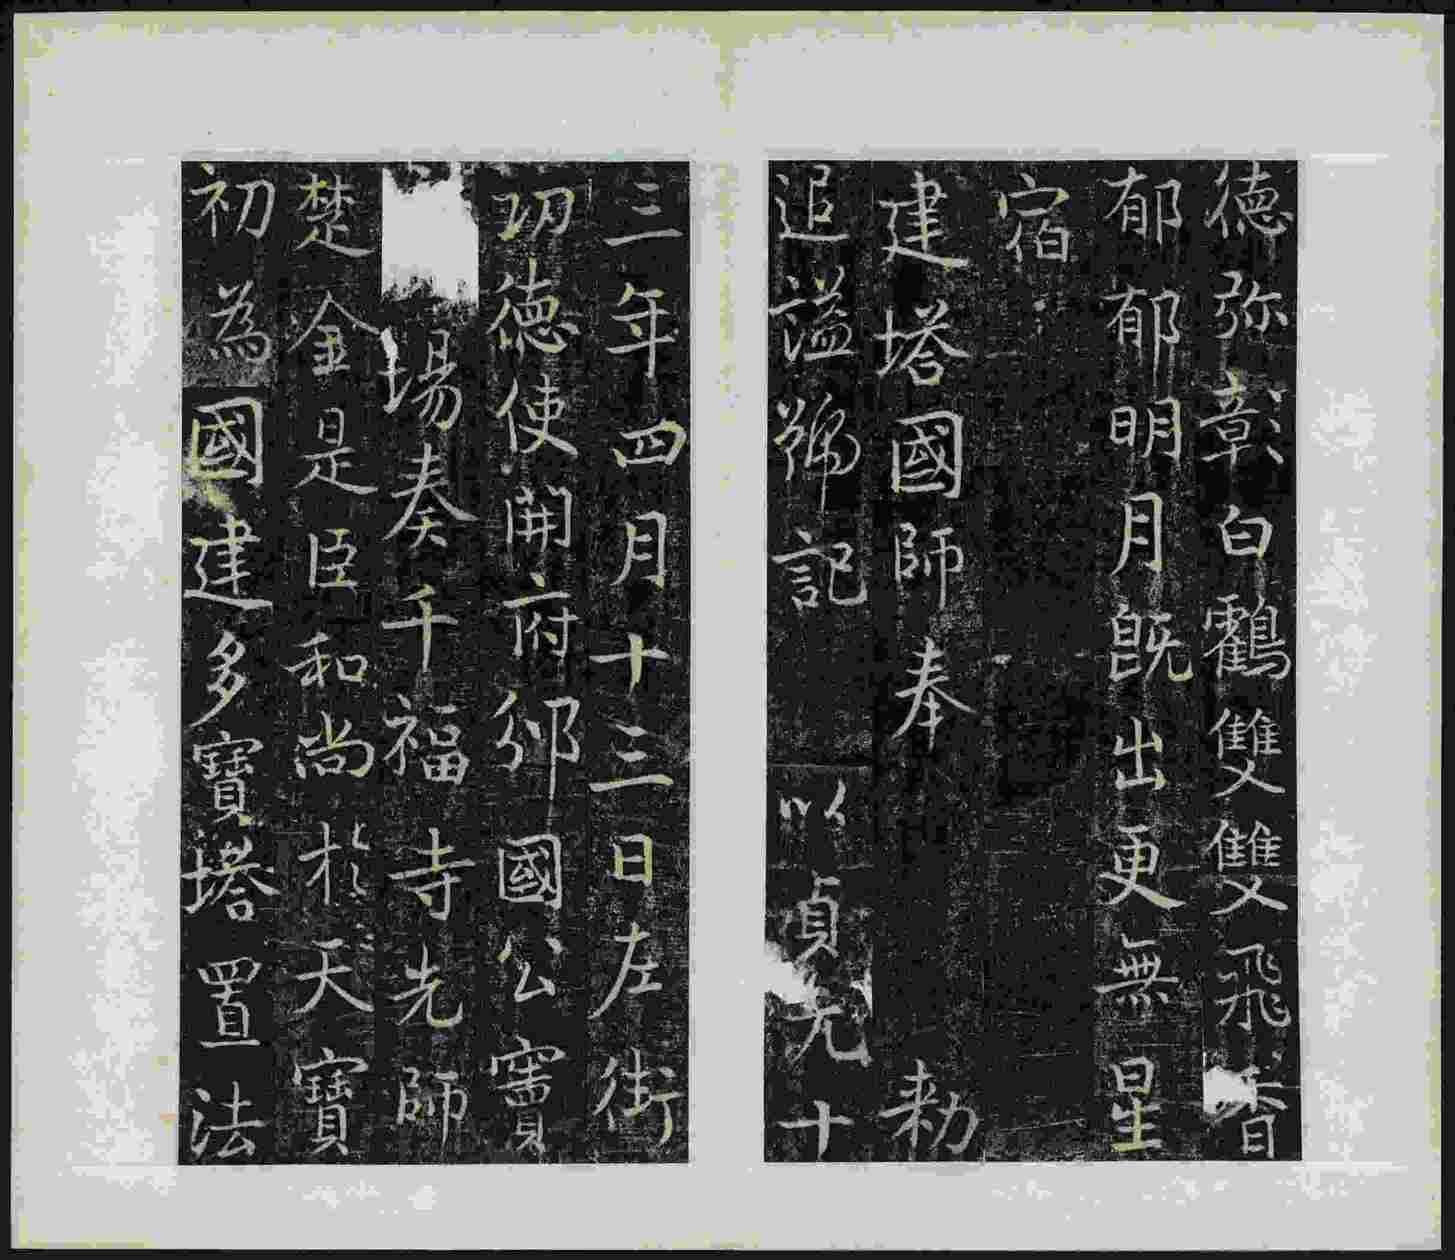 德弥彰白鸖雙雙飛香
郁郁明月既出更無星
宿
建塔國師奉勅
追謚號記以貞元十
三年四月十三日左街
功德使開府邠國公竇
場奏千福寺先師
楚金是臣和尚於天寶
初為國建多寶塔置法